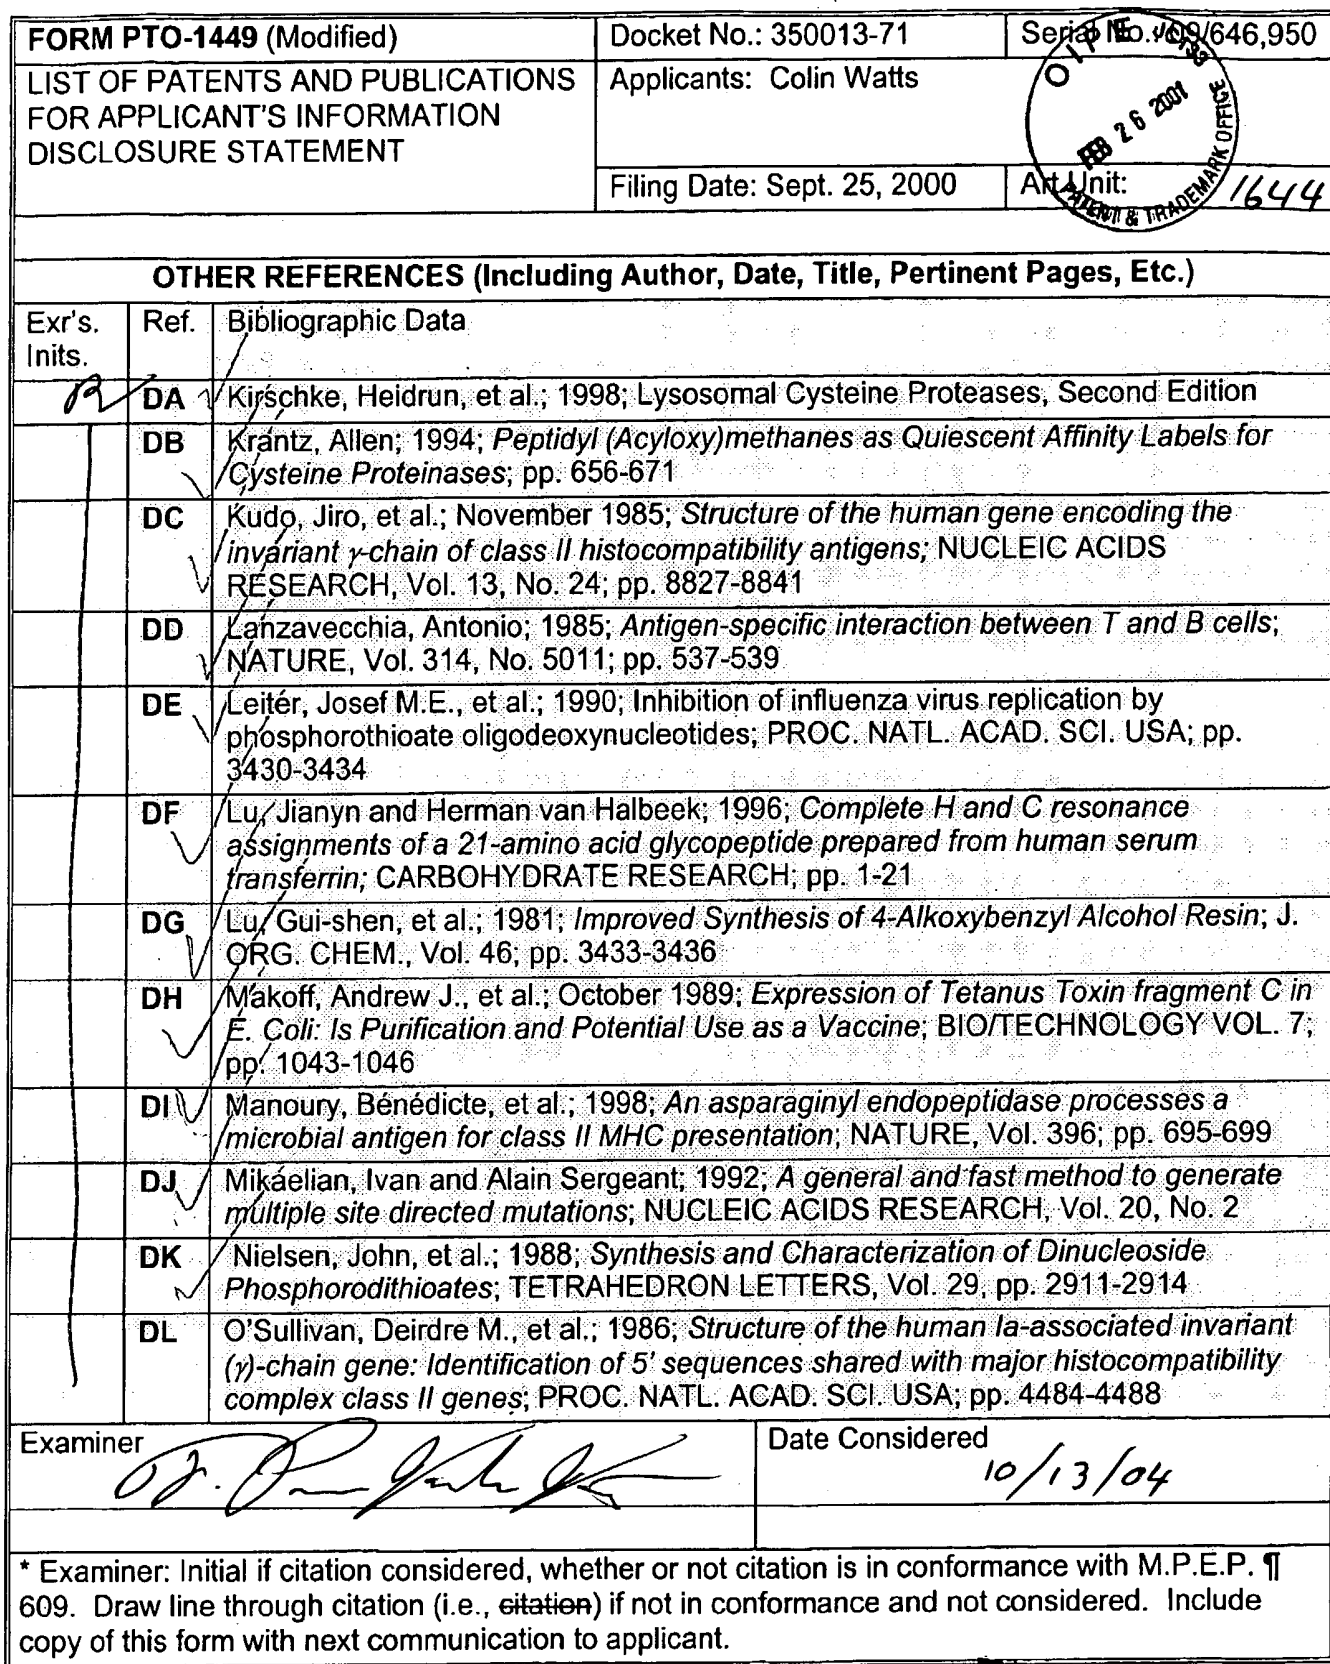 FORM PTO-1449 (Modified)
Docket No.: 350013-71
Serial No.: 09/646,950
LIST OF PATENTS AND PUBLICATIONS
FOR APPLICANT'S INFORMATION
DISCLOSURE STATEMENT
Applicants: Colin Watts
OIPE JC133
FEB 26 2001
PATENT & TRADEMARK OFFICE
Filing Date: Sept. 25, 2000
Art Unit: 1644
OTHER REFERENCES (Including Author, Date, Title, Pertinent Pages, Etc.)
Exr's.
Inits.
Ref.
Bibliographic Data
DA Kirschke, Heidrun, et al.; 1998; Lysosomal Cysteine Proteases, Second Edition
DB Krantz, Allen; 1994; Peptidyl (Acyloxy)methanes as Quiescent Affinity Labels for
Cysteine Proteinases; pp. 656-671
DC Kudo, Jiro, et al.; November 1985; Structure of the human gene encoding the
invariant γ-chain of class II histocompatibility antigens; NUCLEIC ACIDS
RESEARCH, Vol. 13, No. 24; pp. 8827-8841
DD Lanzavecchia, Antonio; 1985; Antigen-specific interaction between T and B cells;
NATURE, Vol. 314, No. 5011; pp. 537-539
DE Leiter, Josef M.E., et al.; 1990; Inhibition of influenza virus replication by
phosphorothioate oligodeoxynucleotides; PROC. NATL. ACAD. SCI. USA; pp.
3430-3434
DF Lu, Jianyn and Herman van Halbeek; 1996; Complete H and C resonance
assignments of a 21-amino acid glycopeptide prepared from human serum
transferrin; CARBOHYDRATE RESEARCH; pp. 1-21
DG Lu, Gui-shen, et al.; 1981; Improved Synthesis of 4-Alkoxybenzyl Alcohol Resin; J.
ORG. CHEM., Vol. 46; pp. 3433-3436
DH Makoff, Andrew J., et al.; October 1989; Expression of Tetanus Toxin fragment C in
E. Coli: Is Purification and Potential Use as a Vaccine; BIO/TECHNOLOGY VOL. 7;
pp. 1043-1046
DI Manoury, Bénédicte, et al.; 1998; An asparaginyl endopeptidase processes a
microbial antigen for class II MHC presentation; NATURE, Vol. 396; pp. 695-699
DJ Mikaelian, Ivan and Alain Sergeant; 1992; A general and fast method to generate
multiple site directed mutations; NUCLEIC ACIDS RESEARCH, Vol. 20, No. 2
DK Nielsen, John, et al.; 1988; Synthesis and Characterization of Dinucleoside
Phosphorodithioates; TETRAHEDRON LETTERS, Vol. 29, pp. 2911-2914
DL O'Sullivan, Deirdre M., et al.; 1986; Structure of the human Ia-associated invariant
(γ)-chain gene: Identification of 5' sequences shared with major histocompatibility
complex class II genes; PROC. NATL. ACAD. SCI. USA; pp. 4484-4488
Examiner
Date Considered
10/13/04
* Examiner: Initial if citation considered, whether or not citation is in conformance with M.P.E.P. ¶
609. Draw line through citation (i.e., citation) if not in conformance and not considered. Include
copy of this form with next communication to applicant.